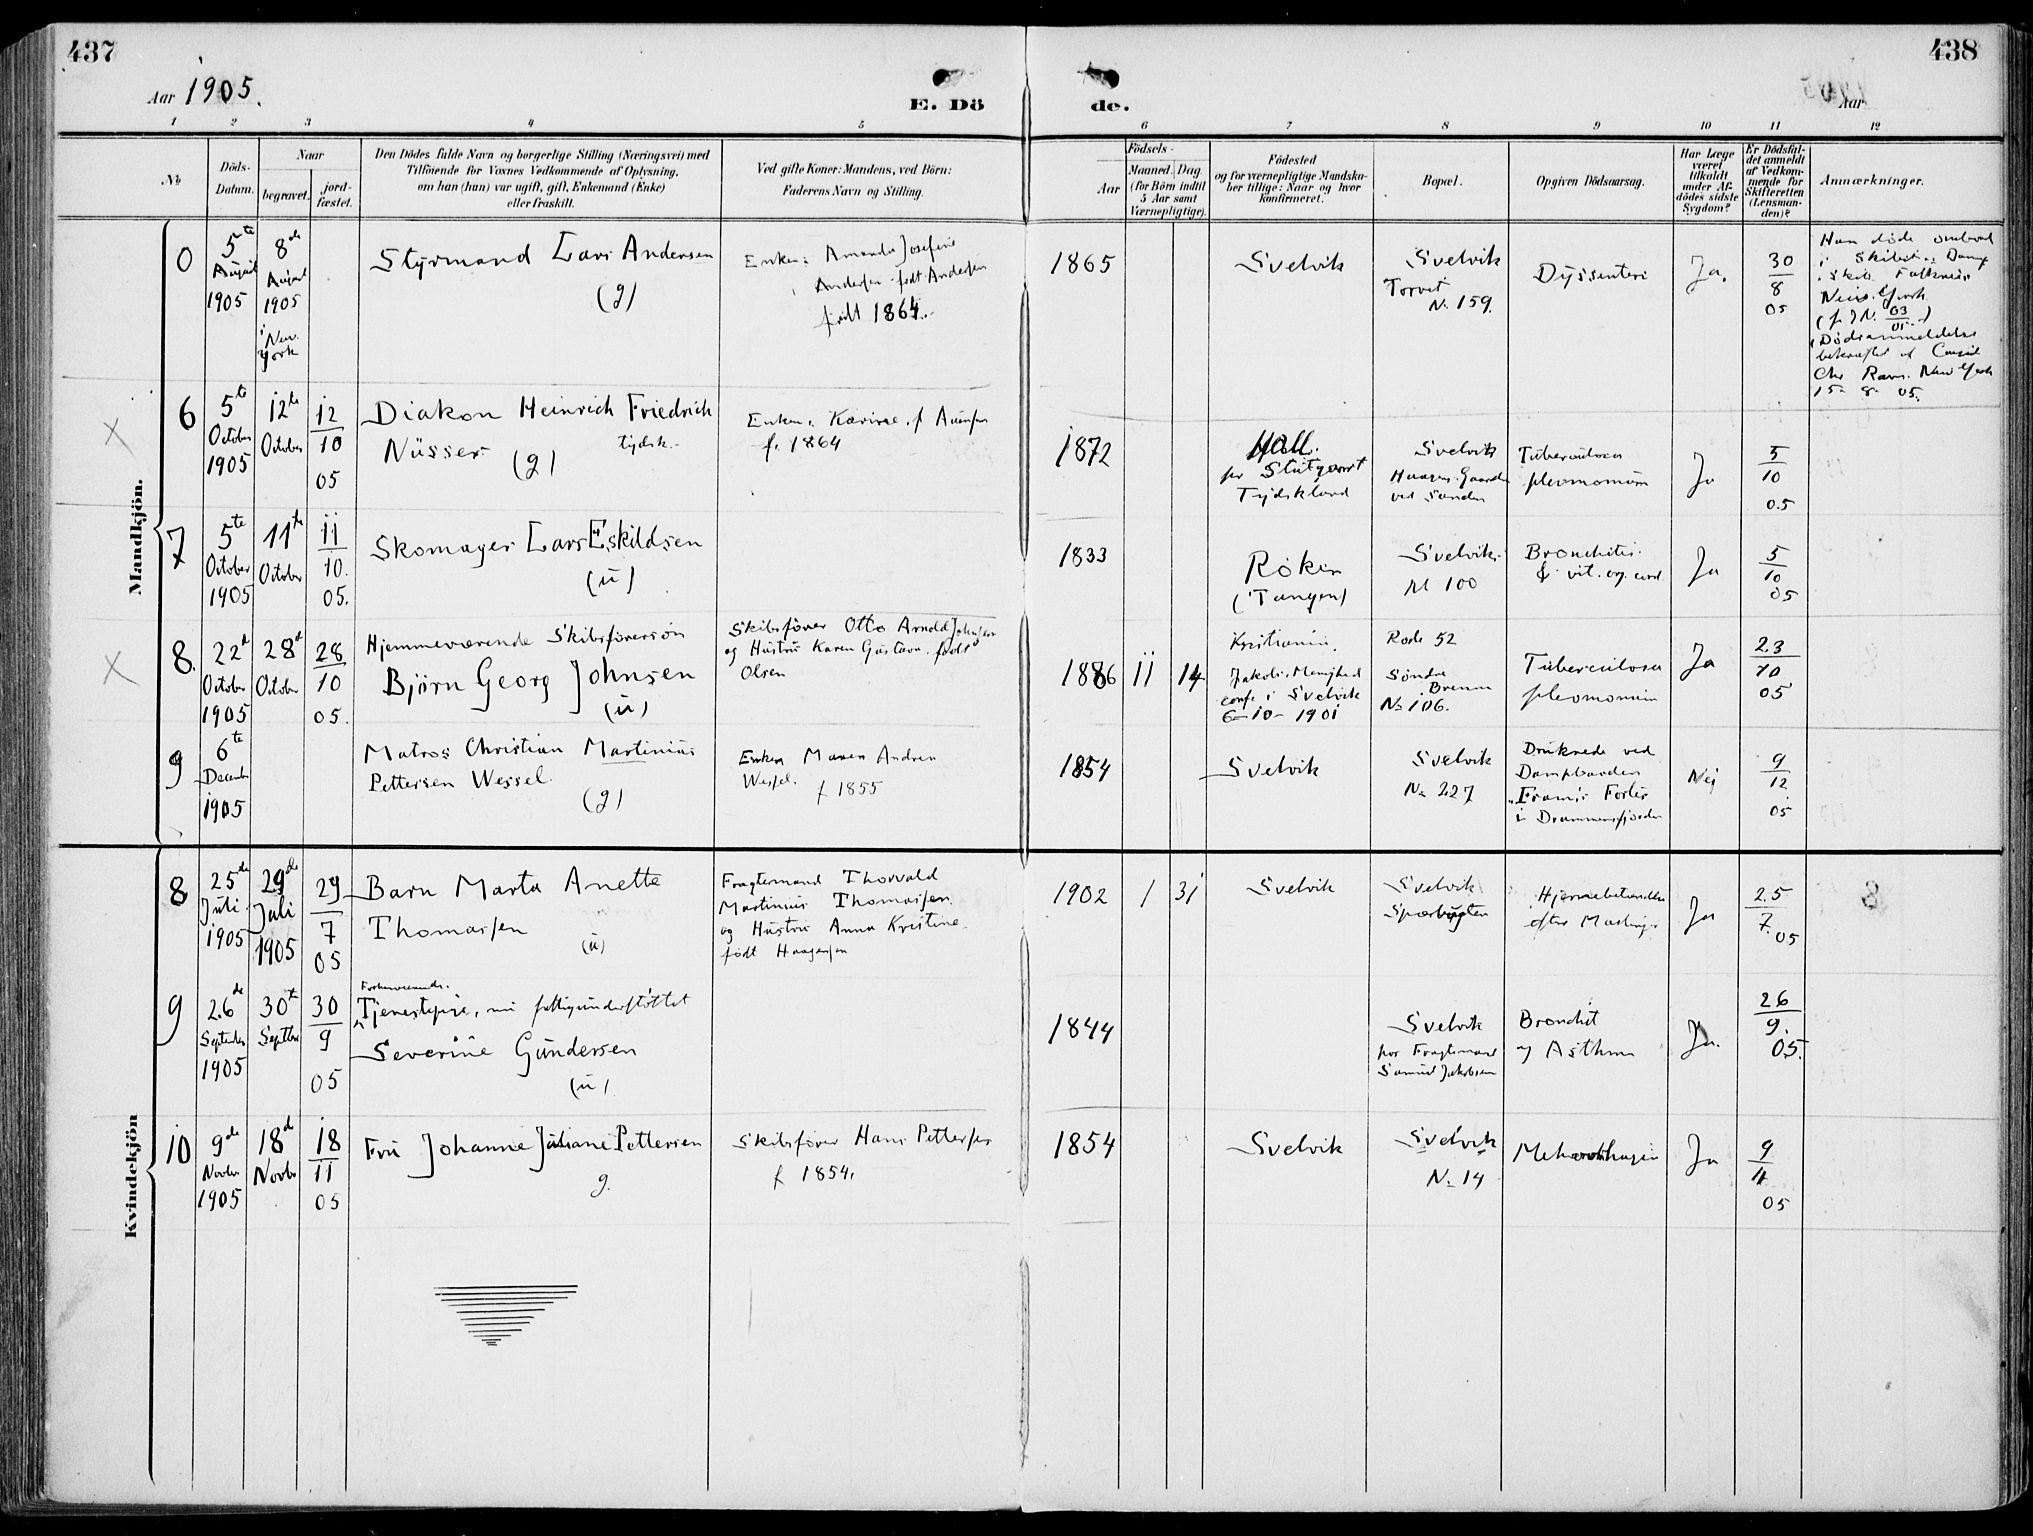 437
438
Aar 1905.
E. Dö
de.
Aar
1 2 3 4 5 6 7 8 9 10 11 12
No
Döds-
Datum.
Naar
begravet.
jord-
fæstet.
Den Dödes fulde Navn og borgerlige Stilling (Næringsvei) med
Tilföiende for Voxnes Vedkommende af Oplysning,
om han (hun) var ugift, gift, Enkemand (Enke)
eller fraskilt.
Ved gifte Koner: Mandens, ved Börn:
Faderens Navn og Stilling.
Födsels-
Aar
Maaned. Dag.
(for Börn indtil
5 Aar samt
Værnepligtige).
Födested
og for værnepligtige Mandska-
ber tillige: Naar og hvor
konfirmeret.
Bopæl.
Opgiven Dödsaarsag.
Har Læge
været
tilkaldt
under Af-
dödes sidste
Sygdom?
Er Dödsfal-
det anmeldt
af Vedkom-
mende for
Skifteretten
(Lensman-
den)?
Anmærkninger.
Mandkjön.
0
5te
August
1905
8de
August
1905
i New
York
Styrmand Lars Andersen
(g)
Enke: Amanda Josefine
Andersen født Andersen
født 1864.
1865
Svelvik
Svelvik
Torvet
No 159.
Dyssenteri
Ja.
30
8
05
Han døde ombord
i Skibet Damp
skib Falkness
New York
(f. J N. 03
05)
Dødsanmeldelse
bekræftet af Consul
Chr Ravn. New York
15- 8- 05.
6
5te
October
1905
12te
October
12
10
05
Diakon Heinrich Friedrich
Nüsser tydsk.
(g)
f. 1864
1872
Hall.
pr Stutgart
Tydskland
Svelvik
ved Sanden
Tuberculosa
pleomonum
Ja
5
10
05
7
5te
October
1905
11te
October
11
10.
05.
Skomager Lars Eskildsen
(u)
1833
Röken
(Tangen)
Svelvik
N 100
Bronchitis
& vit. org. cord.
Ja
5
10
05
8.
22d
October
1905
28d
October
28
10
05.
Hjemmeværende Skibsförersön
Björn Georg Johnsen
(u)
Skibsförer Otto Arnold Johnsen
og Hustru Karen Gustava født
Olsen
1886 11 14
Kristiania.
Jakobs Menighed
conf. i Svelvik
6-10-1901
Rode 52
Söndre
No 106.
Tuberculosa
pleomonum
Ja
23
10
05
9
6te
Decemb
1905
Matros Christian Martinius
Pettersen Wessel.
(g)
Enken Maren Andrea
Wessel. f 1855
1854
Svelvik
Svelvik
No 227
Druknede ved
Dampbaaden
"Framis" Forlis
i Drammensfjorden
Nei
9
12
05
Kvindekjön
8
25de
Juli
1905
29de
Juli
1905
29
7
05
Barn Marta Anette
Thomassen
(u)
Fragtemand Thorvald
Martinius Thomassen
og Hustru Anna Kristine
født Haagensen
1902 1 31
Svelvik
Svelvik
Hjernebetændelse
efter Mæslinger
Ja
25
7.
05
9
26de
September
1905
30te
Septbr
30
9
05
Forhenværende
Tjenestepige, nu fattigunderstöttet
Severine Gundersen
(u)
1844
Svelvik
hos Fragtemand
Samuel Jakobsen
Bronchit
og Asthma
Ja.
26
9.
05.
10
9de
Novbr
1905
18d
Novbr
18
11
05
Fru Johanne Juliane Pettersen
g.
Skibsförer Hans Pettersen
f 1854.
1854
Svelvik
Svelvik
No 14
Ja
9
11
05